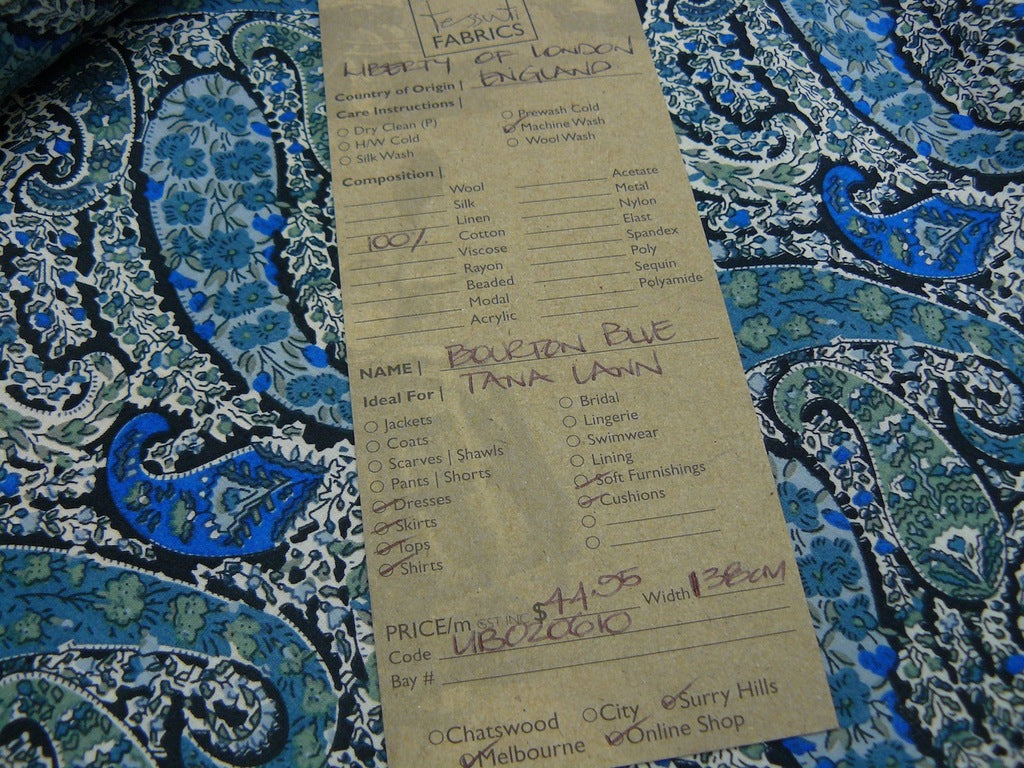 tessuti
FABRICS
LIBERTY OF LONDON
Country of Origin | ENGLAND
Care Instructions |
Dry Clean (P)
H/W Cold
Silk Wash
Prewash Cold
Machine Wash
Wool Wash
Composition |
Wool
Silk
Linen
100% Cotton
Viscose
Rayon
Beaded
Modal
Acrylic
Acetate
Metal
Nylon
Elast
Spandex
Poly
Sequin
Polyamide
NAME | BOURTON BLUE
TANA LAWN
Ideal For |
Jackets
Coats
Scarves | Shawls
Pants | Shorts
Dresses
Skirts
Tops
Shirts
Bridal
Lingerie
Swimwear
Lining
Soft Furnishings
Cushions
PRICE/m GST INC $44.95 Width 138cm
Code LIB020610
Bay #
Chatswood City Surry Hills
Melbourne Online Shop